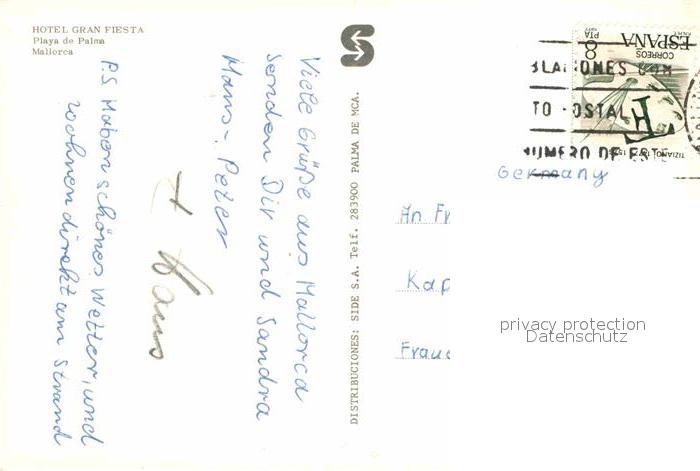 HOTEL GRAN FIESTA
Playa de Palma
Mallorca
Viele Grüße aus Mallorca
senden Dir und Sandra
Hans-Peter
+ Hans
P.S Haben schönes Wetter, und
wohnen direkt am Strand
DISTRIBUCIONES: SIDE S.A. Telf. 283900 PALMA DE MCA.
S
8
PTA
ESPAÑA
CORREOS
TO POSTAL
NUMERO DE
Germany
An Fr
Kap
Frau
privacy protection
Datenschutz